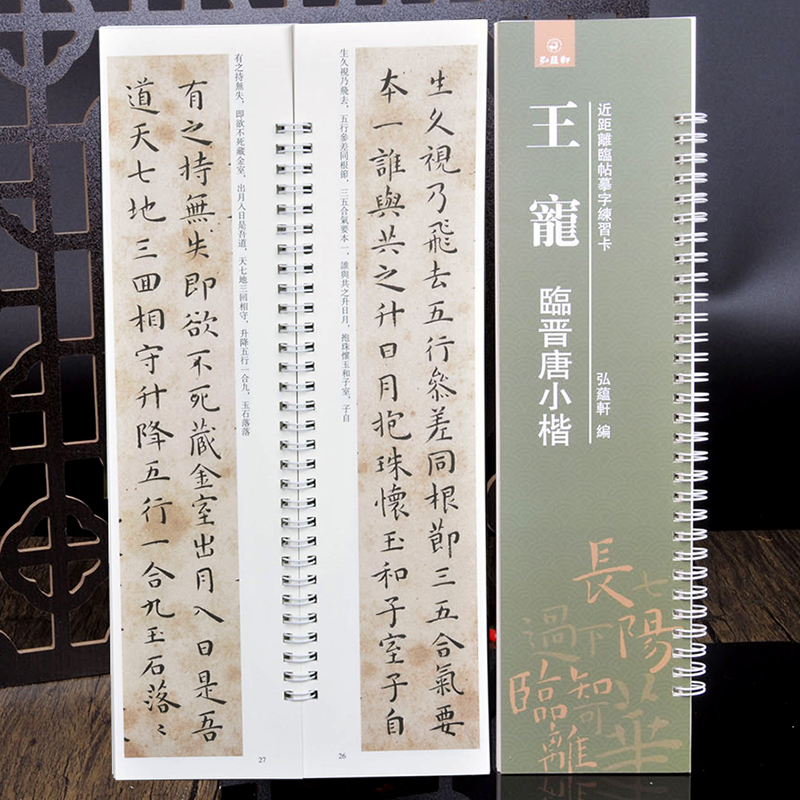 弘蘊軒
近距離臨帖摹字練習卡
王寵
臨晋唐小楷
弘蘊軒 編
長
七
陽
過
下
臨
知
華
離
生久視乃飛去五行參差同根節三五合氣要
本一誰與共之升日月抱珠懷玉和子室子自
生久視乃飛去，五行參差同根節，三五合氣要本一，誰與共之升日月，抱珠懷玉和子室，子自
26
有之持無失，即欲不死藏金室，出月入日是吾道，天七地三回相守，升降五行一合九，玉石落落
有之持無失即欲不死藏金室出月入日是吾
道天七地三回相守升降五行一合九玉石落〻
27